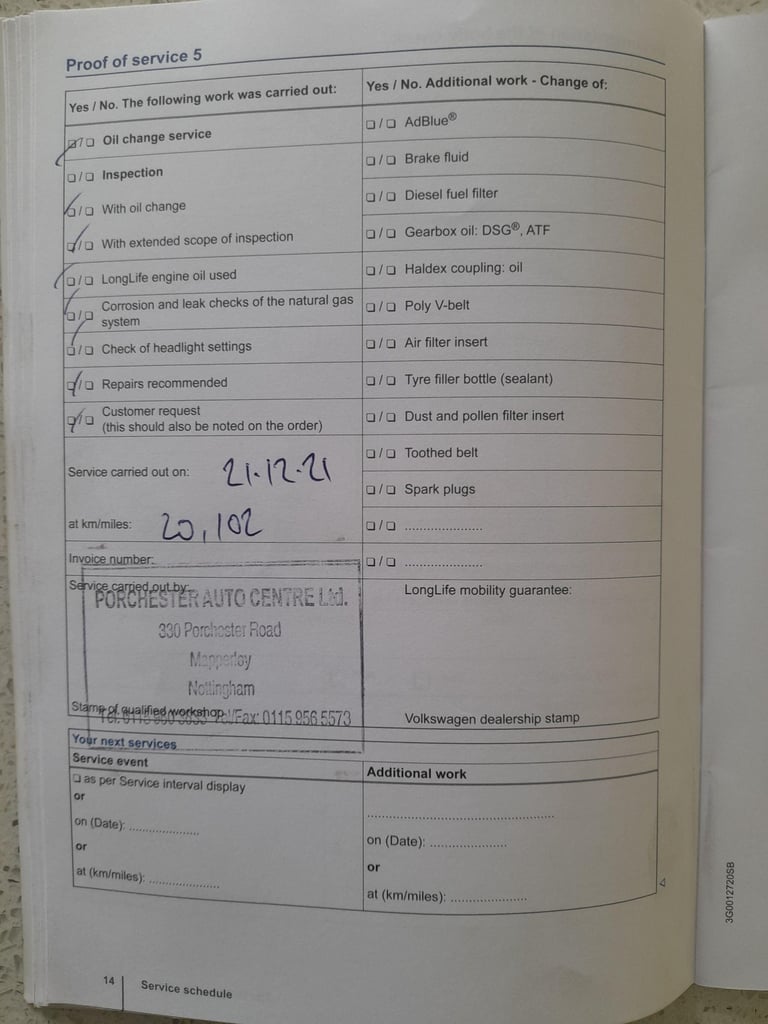 Proof of service 5
Yes / No. The following work was carried out:
☑/☐ Oil change service
☐/☐ Inspection
☑/☐ With oil change
☑/☐ With extended scope of inspection
☑/☐ LongLife engine oil used
☑/☐ Corrosion and leak checks of the natural gas
system
☑/☐ Check of headlight settings
☑/☐ Repairs recommended
☑/☐ Customer request
(this should also be noted on the order)
Service carried out on: 21.12.21
at km/miles: 20,102
Invoice number:
Service carried out by:
PORCHESTER AUTO CENTRE Ltd.
330 Porchester Road
Mapperley
Nottingham
Stamp of qualified workshop
Fax: 0115 956 5573
Yes / No. Additional work - Change of:
☐/☐ AdBlue®
☐/☐ Brake fluid
☐/☐ Diesel fuel filter
☐/☐ Gearbox oil: DSG®, ATF
☐/☐ Haldex coupling: oil
☐/☐ Poly V-belt
☐/☐ Air filter insert
☐/☐ Tyre filler bottle (sealant)
☐/☐ Dust and pollen filter insert
☐/☐ Toothed belt
☐/☐ Spark plugs
☐/☐ .....................
☐/☐ .....................
LongLife mobility guarantee:
Volkswagen dealership stamp
Your next services
Service event
☐ as per Service interval display
or
on (Date): ...................
or
at (km/miles): ...................
Additional work
..................................................
on (Date): .....................
or
at (km/miles): .....................
14 Service schedule
3G0012720SB